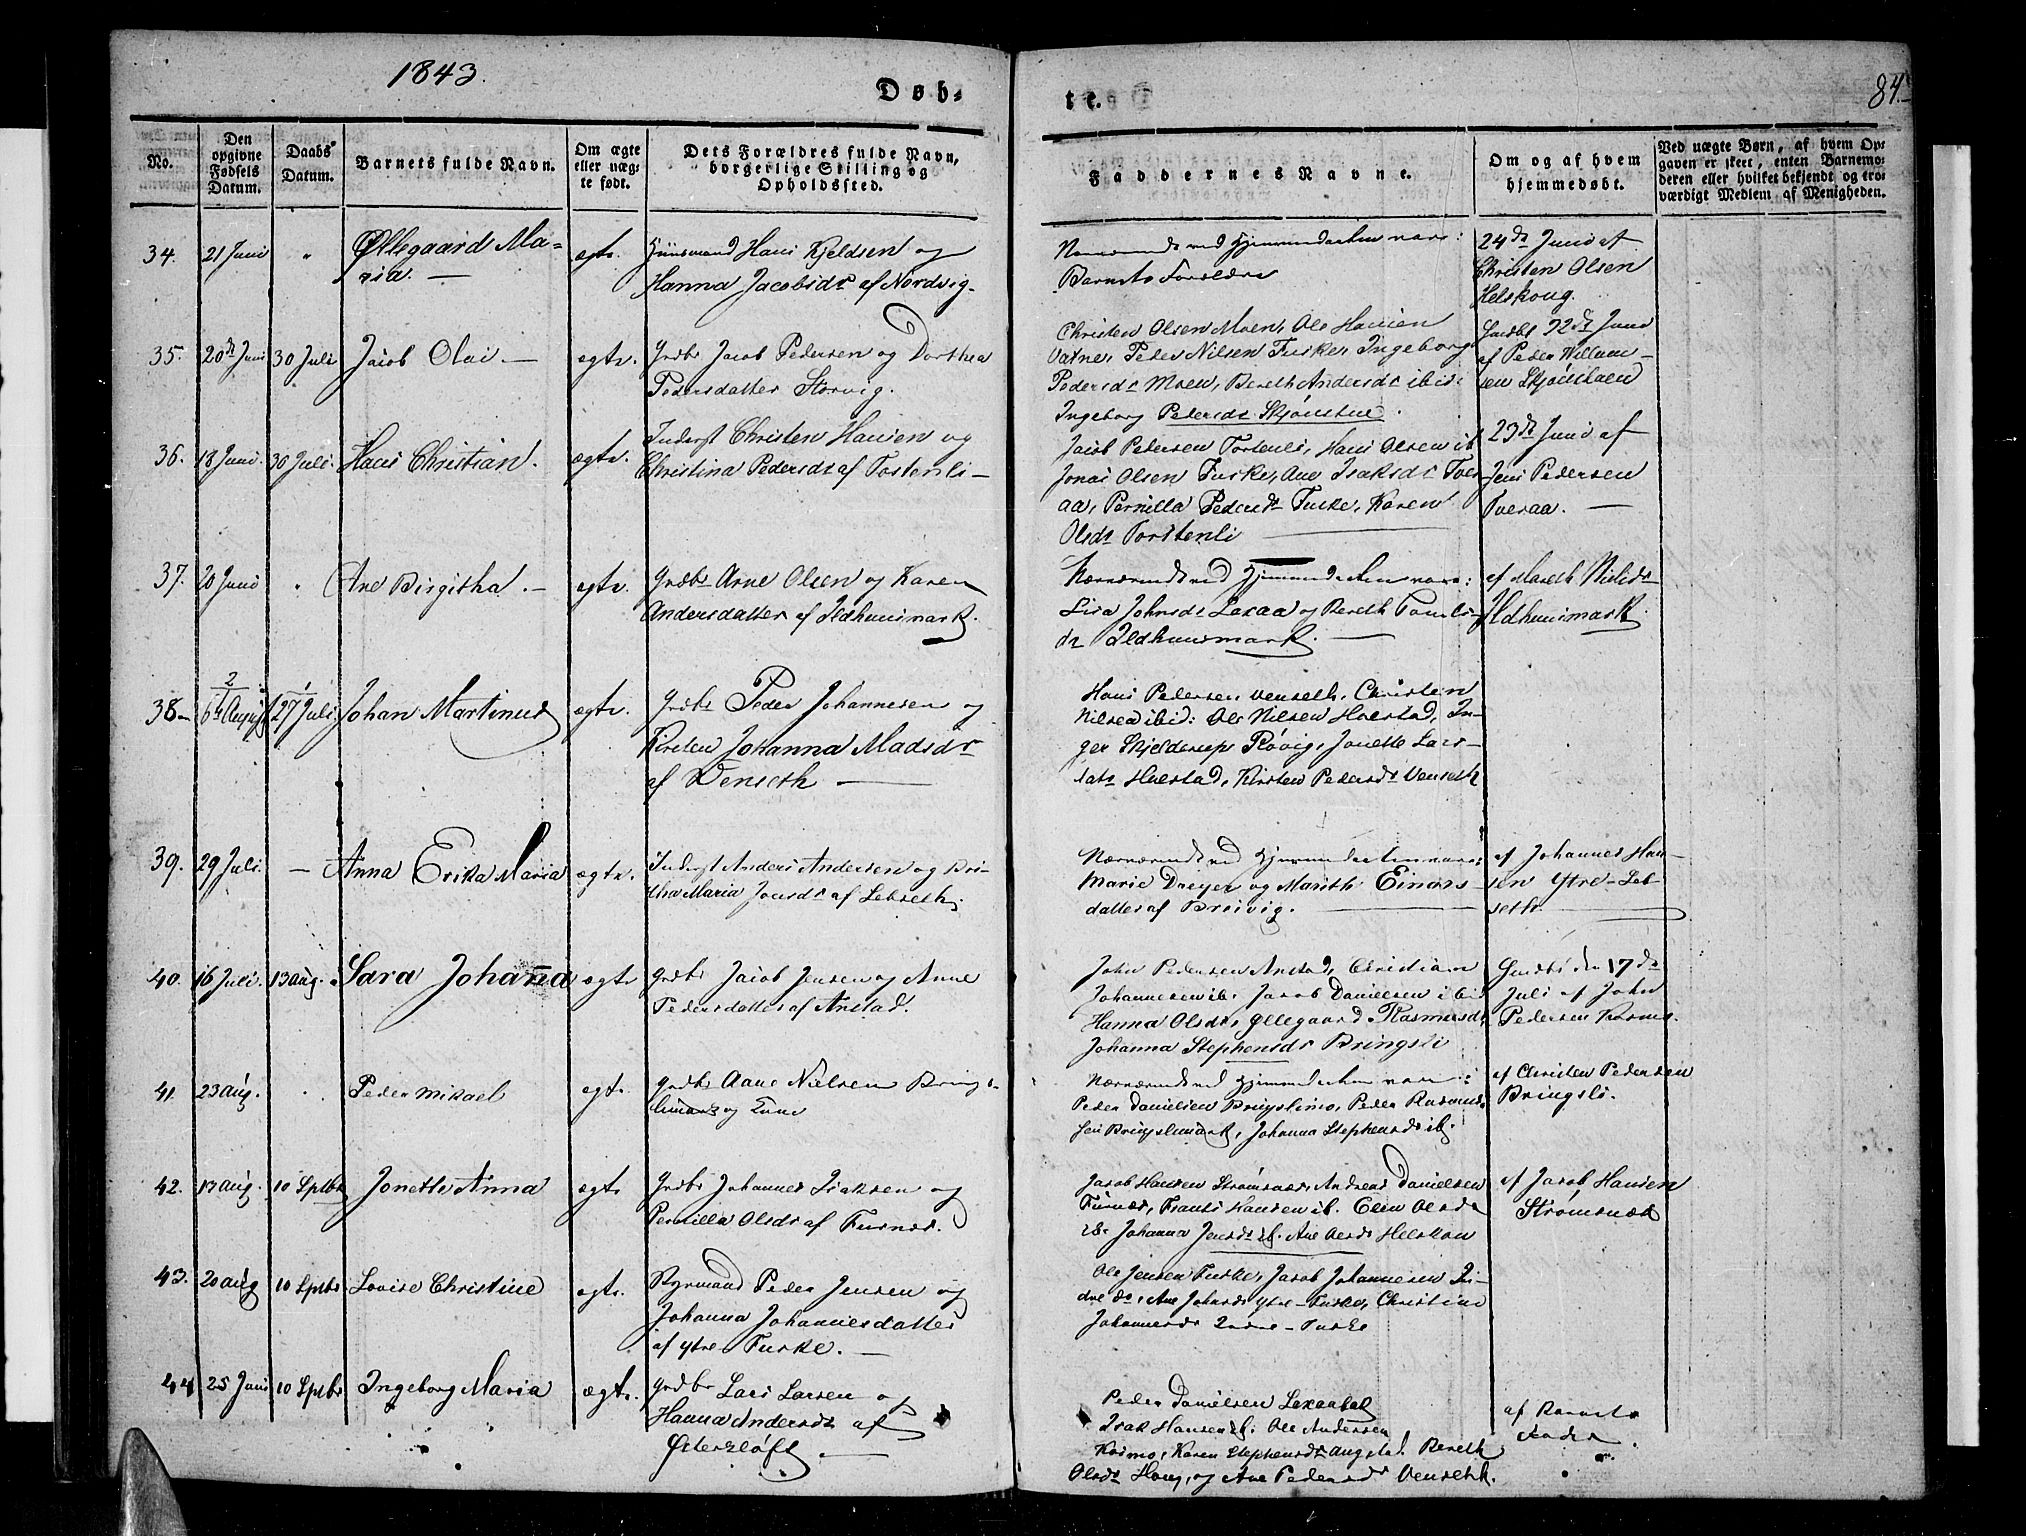 1843.
Døb-
te.
84.
No.
Den opgivne Fødsels Datum.
Daabs Datum.
Barnets fulde Navn.
Om ægte eller uægte født.
Dets Forældres fulde Navn, borgerlige Stilling og Opholdssted.
Faddernes Navne.
Om og af hvem hjemmedøbt.
Ved uægte Børn, af hvem Opgaven er skeet, enten Barnemoderen eller hvilket bekjendt og troværdigt Medlem af Menigheden.
34. 21 Juni " Øllegaard Ma-
ria. —
ægte.
Huusmand Hans Kjeldsen og
Hanna Jacobsdr af Nordvig.
Nærværende ved Hjemmedaaben vare:
Barnets Forældre
24de Juni af
Christen Olsen
Helskoug.
35. 20de Juni 30 Juli Jacob Olai. — ægte.
Grdbr Jacob Pedersen og Dorthea
Pedersdatter Storvig.
Christen Olsen Moen, Ole Hansen
Vatne, Peder Nilsen Fuske, Ingeborg
Pedersdr Moen, Bereth Andersdr ibid:
Ingeborg Pedersdr Skjønstue.
22de Juni
af Peder Willum-
sen Skjønstuen
36. 18 Juni. 30 Juli. Hans Christian. ægte.
Inderst Christen Hansen og
Christina Pedersdr af Tostenli —
Jacob Pedersen Tostenli, Hans Olsen ib
Jonas Olsen Fuske, Ane Isaksdr Tver-
aa, Pernilla Pedersdr Fuske, Karen
Olsdr Torstenli
23de Juni af
Jens Pedersen
Tveraa. —
37. 20 Juni " Ane Birgitha. — ægte.
Grdbr Arne Olsen og Karen
Andersdatter af Ildhuusmark.
Nærværende ved Hjemmedaaben vare:
Lisa Johnsdr Laxaa og Bereth Tomli-
dr Ildhuusmark. —
af Mareth Nielsdr
Ildhuusmark.
38. 2/6te August 1/27 Juli Johan Martinus ægte.
Grdbr Peder Johannesen og
Kirsten Johanna Madsdr
af Venseth —
Hans Pedersen Venseth, Christen
Nilsen ibid: Ole Nilsen Hverstad, In-
ger Skjelderup Røvig, Jonette Lars-
datr Hverstad, Kirsten Pedersdr Venseth
39. 29 Juli. — Anna Erika Maria ægte.
Inderst Anders Andersen og Bri-
tha Maria Jonsdr af Lebseth.
Nærværende ved Hjemmedaaben vare:
Marie Dreyer og Mareth Einars-
datter af Breivig. —
af Johannes Han-
sen Ytre-Leb-
seth. —
40. 16 Juli. 13 aug. Sara Johanna ægte
Grdbr Jacob Jensen og Anne
Pedersdatter af Anstad.
John Pedersen Anstad, Christian
Johannesen ib. Jacob Danielsen ibid
Hanna Olsdr, Øllegaard Rasmusdr,
Johanna Stephensdr Bringsli
den 17de
Juli af John
Pedersen
41. 23 aug. " Peder Mikael ægte.
Grdbr Aane Nielsen Brings-
limark og Lune
Nærværende ved Hjemmedaaben vare:
Peder Danielsen Bringslimo, Peder Rasmus-
sen Bringslimark, Johanna Stephensdr ib.
af Christen Pedersen
Bringsli.
42. 13 aug. 10 Septbr Jonette Anna ægte
Grdbr Johannes Isaksen og
Pernilla Olsdr af Furnæs.
Jacob Hansen Strømsnæs, Andreas Danielsen
Furnæs, Frants Hansen ib. Elen Olsdr
ib. Johanna Jensdr ib. Ane Olsdr Helskou
af Jacob Hansen
Strømsnæs
43. 20 aug 10 Septbr Lovise Christine ægte.
Ryrmand Peder Jensen og
Johanna Johannesdatter
af ytre Fuske. —
Ole Jensen Fuske, Jacob Johannesen In-
dre do, Ane Johnsdr ytre-Fuske, Christine
Johannesdr Indre-Fuske
44 25 Juni 10 Septbr Ingeborg Maria ægte.
Grdbr Lars Larsen og
Hanna Andersdr af
Østerkløft —
Peder Danielsen
Isak Hansen ib. Ole Andersen
Kosmo, Karen Stephensdr Angstad. Bereth
Olsdr Houg, og Ane Pedersdr Venseth.
af Barnets
Fader.